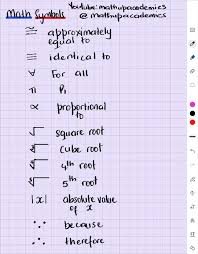 Math Symbols
Youtube: mathupacademics
@mathupacademics
≅ approximately
equal to
≡ identical to
∀ For all
π Pi
∝ proportional
to
√ square root
∛ cube root
∜ 4th root
⁵√ 5th root
|x| absolute value
of x
∵ because
∴ therefore